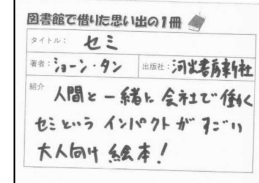 図書館で借りた思い出の1冊
タイトル: セミ
著者: ショーン・タン 出版社: 河出書房新社
紹介
人間と一緒に会社で働く
セミという インパクトがすごい
大人向け絵本!